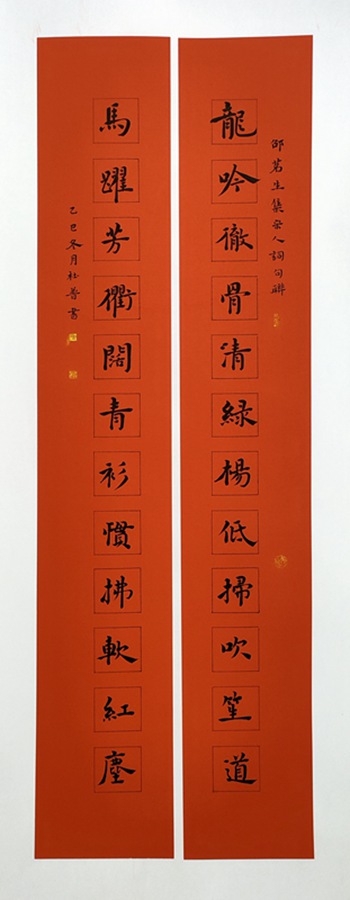 邵茗生集宋人詞句聯
龍吟徹骨清綠楊低掃吹笙道
馬躍芳衢闊青衫慣拂軟紅塵
乙巳冬月杜書